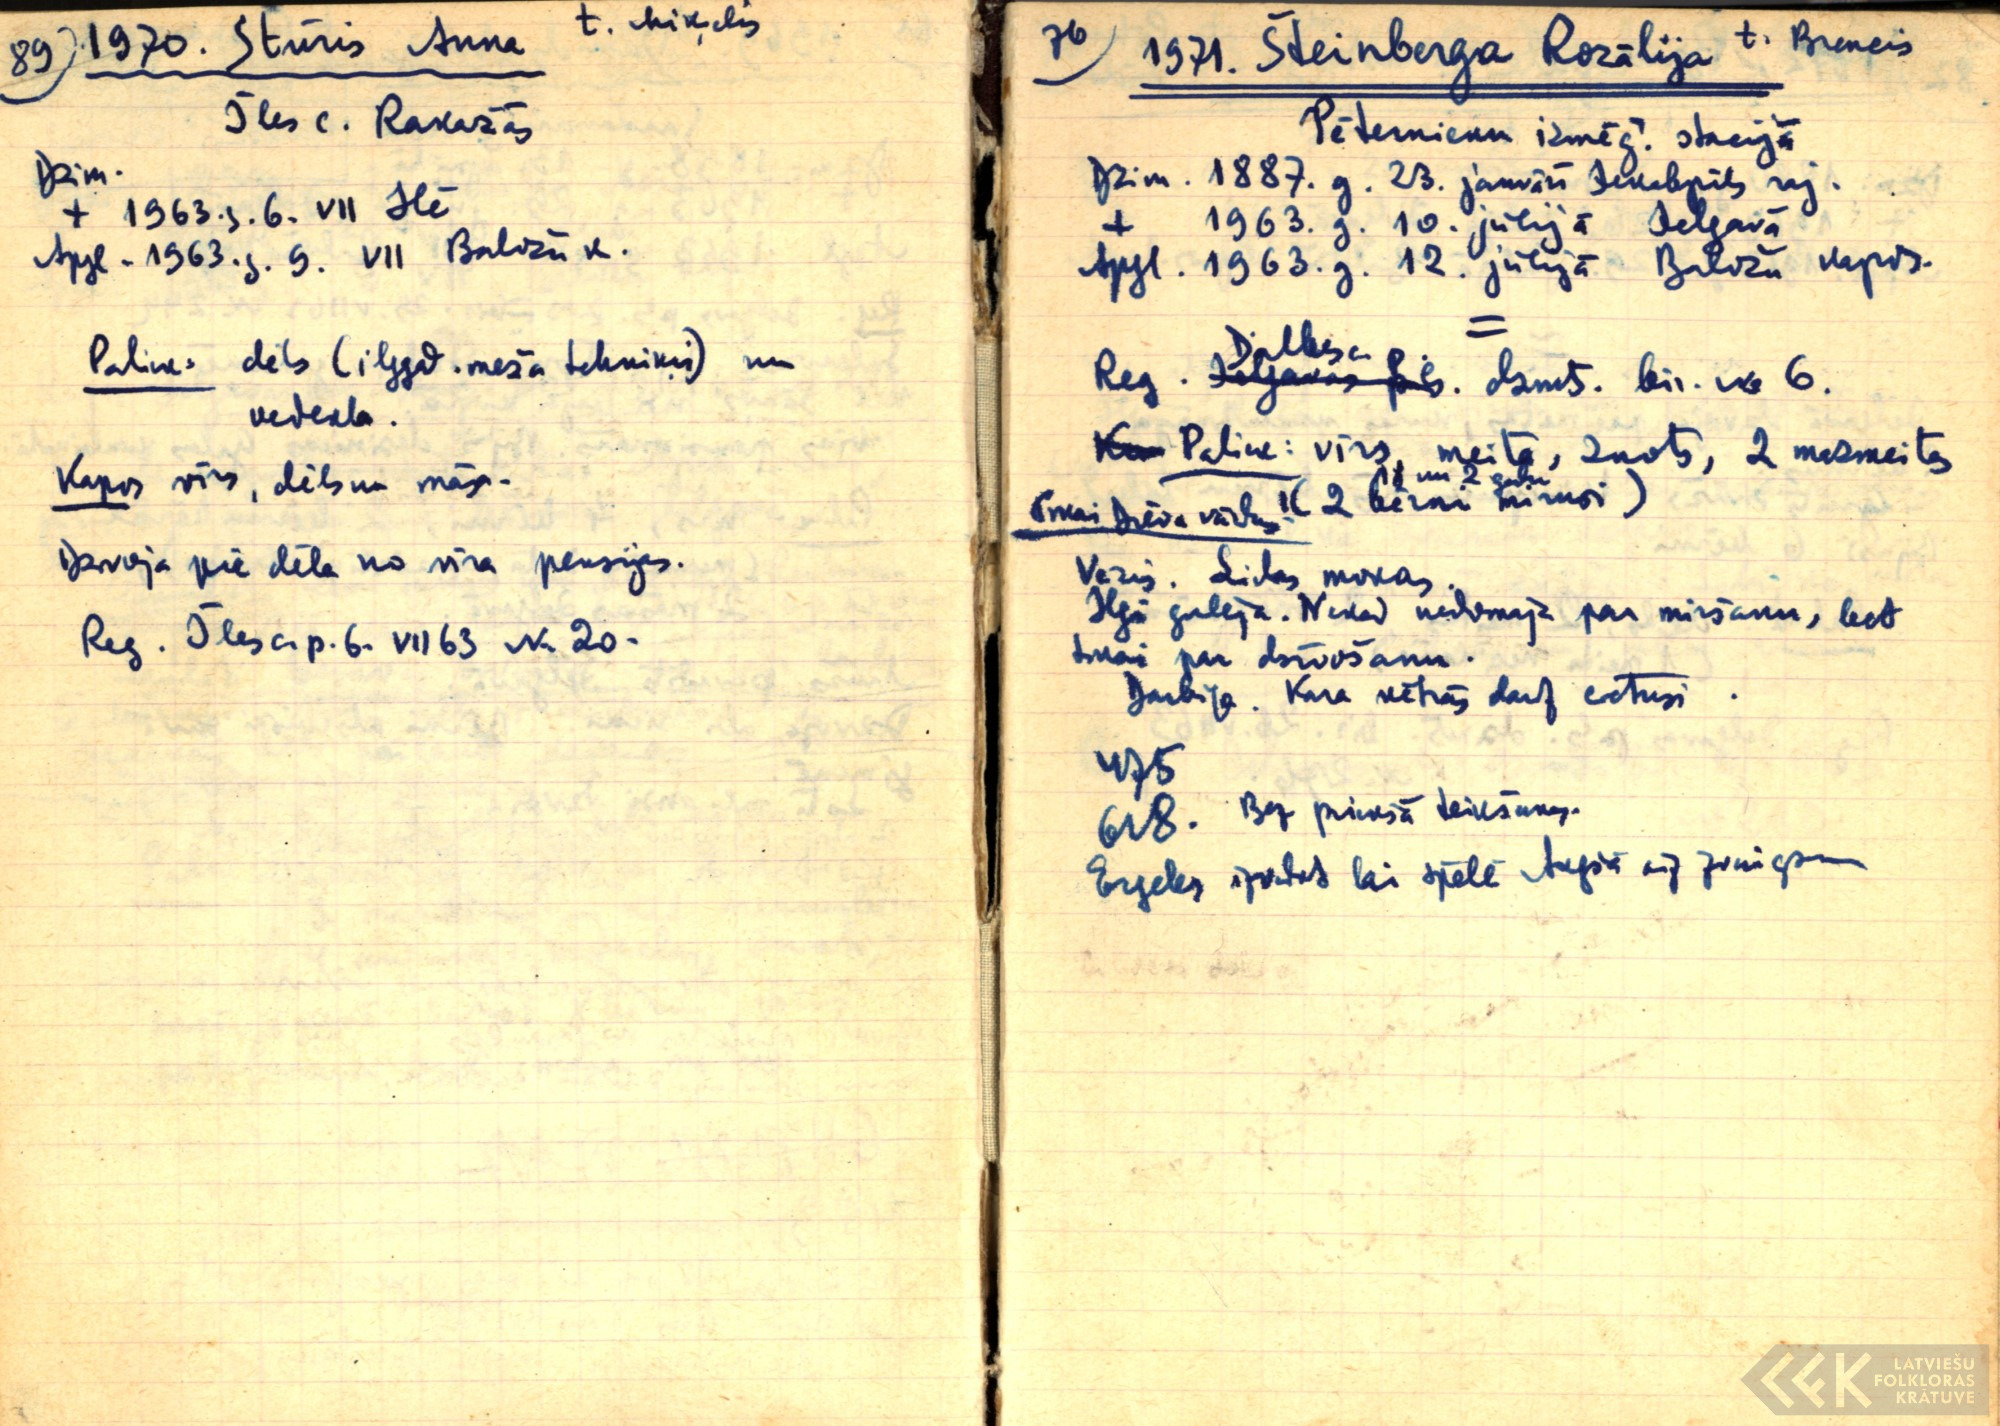 89) 1970. Stūris Anna t. Miķelis
Īles c. Rakaržās
Dzim.
+ 1963.g. 6. VII Ilē
Apgl. 1963.g. 9. VII Baložu k.
Paliek: dēls (ilggad. meža tehniķis) un
vedekla.
Kapos vīrs, dēls un māsa.
Dzīvoja pie dēla no vīra pensijas.
Reg. Īles c. p. 6. VII 63 N. 20.
76) 1971. Šteinberga Rozālija t. Brencis
Pēternieku izmēģ. stacijā
Dzim. 1887. g. 23. janvārī Jekabpils raj.
+ 1963. g. 10. jūlijā Jelgavā
Apgl. 1963. g. 12. jūlijā Baložu kapos.
=
Dalbes c.
Reg. Jelgavas pils. dzmts. bir. N 6.
Paliek: vīrs, meita, znots, 2 mazmeitas
(2 bērni miruši)
Tikai Dieva vārdus!
Vēzis. Lielas mokas.
Ilgi guleja. Nekad nedomaja par miršanu, bet
tikai par dzīvošanu.
Darbiga. Kara vētrās daudz cietusi.
475
618. Bez priekšā teikšanas.
Ergeles lai spēlē Augšā aiz zvaigznem